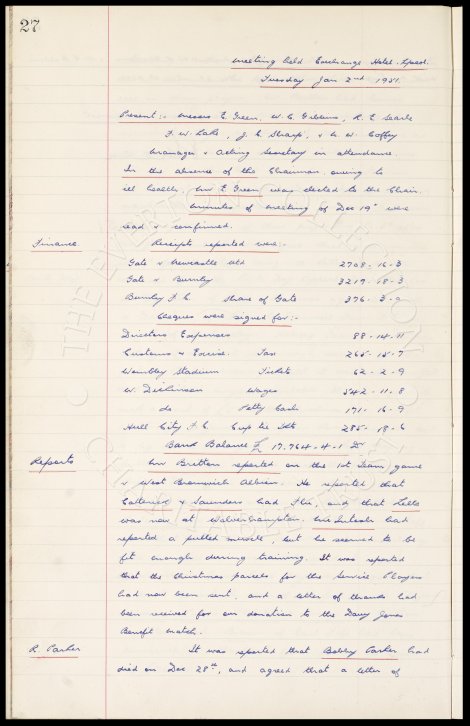 27
Meeting held Exchange Hotel. L'pool.
Tuesday Jan 2nd 1951.
Present:- Messrs E. Green, W. C. Gibbins, R. E. Searle
F. W. Lake, J. C. Sharp, & W. Coffey
Manager & Acting Secretary in attendance.
In the absence of the Chairman, owing to
ill health, Mr E Green was elected to the Chair.
Minutes of meeting of Dec 19th were
read & confirmed.
Finance. Receipts reported were:-
Gate v Newcastle Utd 2708-16-3
Gate v Burnley 3219-18-3
Burnley F.C. Share of Gate 376-3-
Cheques were signed for:-
Directors Expenses 88-14-11
Customs & Excise. Tax 265-15-7
Wembley Stadium Tickets 62-2-9
W. Dickinson Wages 542-11-8
do Petty Cash 171-16-9
Hull City F.C. Cup tie Tkts 285-18-6
Bank Balance £ 17.764-4-1 Dr
Reports Mr Britton reported on the 1st Team game
v West Bromwich Albion. He reported that
Catterick & Saunders had Flu, and that
was now at Wolverhampton. McIntosh had
reported a pulled muscle, but he seemed to be
fit enough during training. It was reported
that the Christmas parcels for the Service Players
had now been sent, and a letter of thanks had
been received for our donation to the Davy Jones
Benefit match.
R Parker It was reported that Bobby Parker had
died on Dec 28th, and agreed that a letter of
THE EVERTON COLLECTION